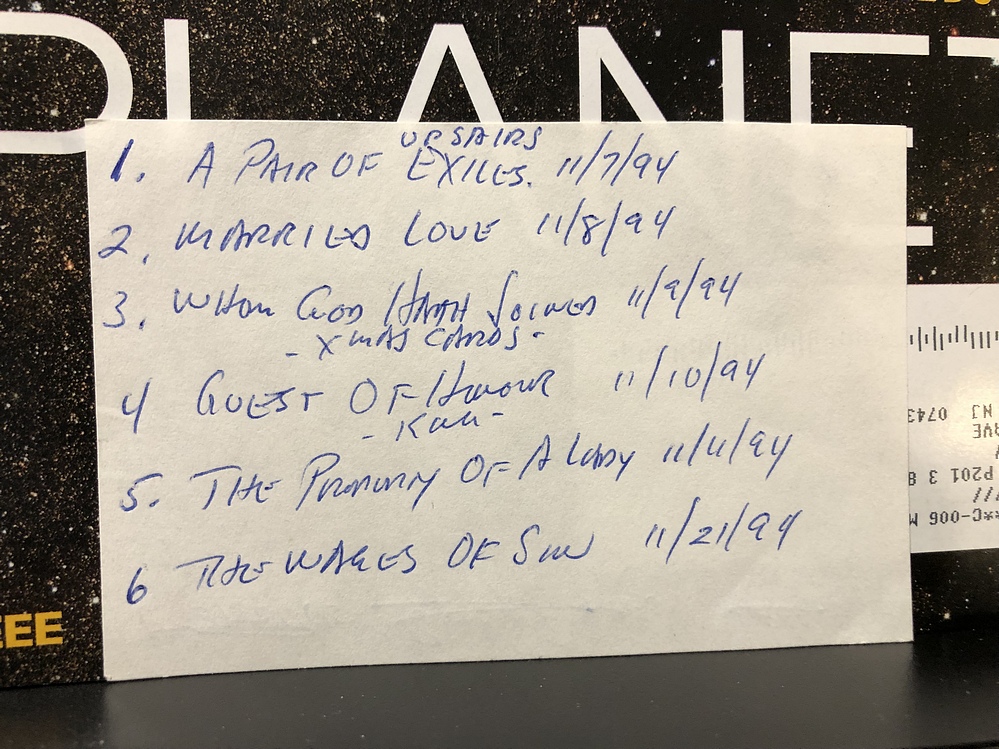 PLANET
UPSAIRS
1. A PAIR OF EXILES. 11/7/94
2. MARRIED LOVE 11/8/94
3. WHOM GOD HATH JOINED 11/9/94
- XMAS CARDS -
4 GUEST OF HONOUR 11/10/94
5. THE PROPERTY OF A LADY 11/11/94
6 THE WAGES OF SIN 11/21/94
EEE
NJ 0743
P201 3 8
**C-006 M